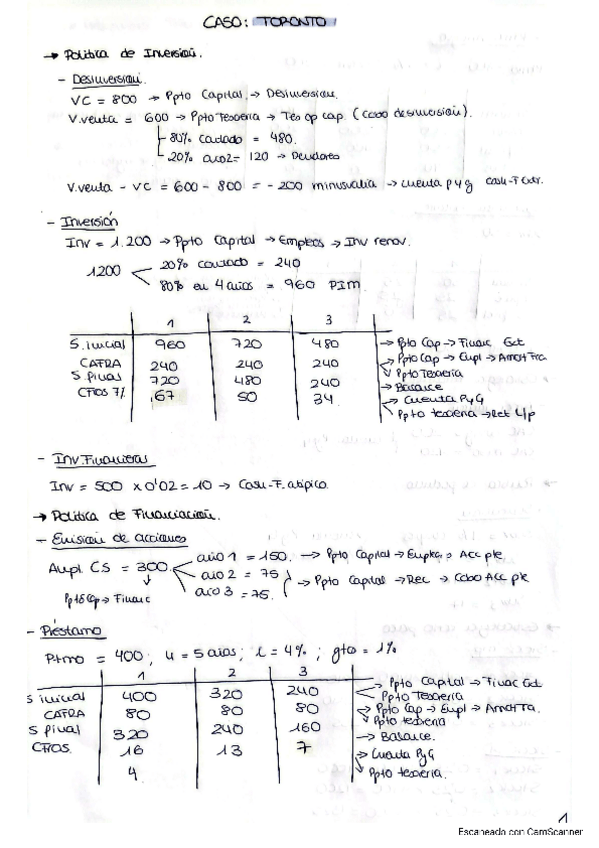 CASO: TORONTO
→ Política de Inversión.
- Desinversión.
VC = 800 → Ppto Capital → Desinversión.
V.venta = 600 → Ppto Tesorería → Tes op cap. (Cobro desinversión).
80% contado = 480.
20% año2 = 120 → Deudores
V.venta - VC = 600 - 800 = -200 minusvalía → cuenta pyg cash-F Extr.
- Inversión
Inv = 1.200 → Ppto Capital → Empleos → Inv renov.
1200
20% contado = 240
80% en 4 años = 960 PIM.
1 2 3
S. inicial 960 720 480 → Ppto Cap → Financ Ext
CAFRA 240 240 240 → Ppto Cap → Empl → Amort Fra
→ Ppto Tesorería
S final 720 480 240 → Balance
CFROS 7% 67 50 34 → Cuenta PyG
→ Ppto tesorería → Ret L/p
- Inv. Financieras
Inv = 500 x 0'02 = 10 → Cash-F. atípico.
→ Política de Financiación.
- Emisión de acciones
Ampl. CS = 300
Ppto Cap → Financ
año 1 = 150. → Ppto Capital → Empleos Acc pte
año 2 = 75
año 3 = 75.
→ Ppto Capital → Rec → Cobo Acc pte
- Préstamo
Ptmo = 400; n = 5 años; i = 4%; gtos = 1%
1 2 3
S inicial 400 320 240 → Ppto Capital → Financ Ext
Ppto Tesorería
CAFRA 80 80 80 → Ppto Cap → Empl → Amort Fra.
→ Ppto tesorería
S final 320 240 160 → Balance.
CFROS. 16 13 7 → Cuenta PyG
4 → Ppto tesorería.
1
Escaneado con CamScanner